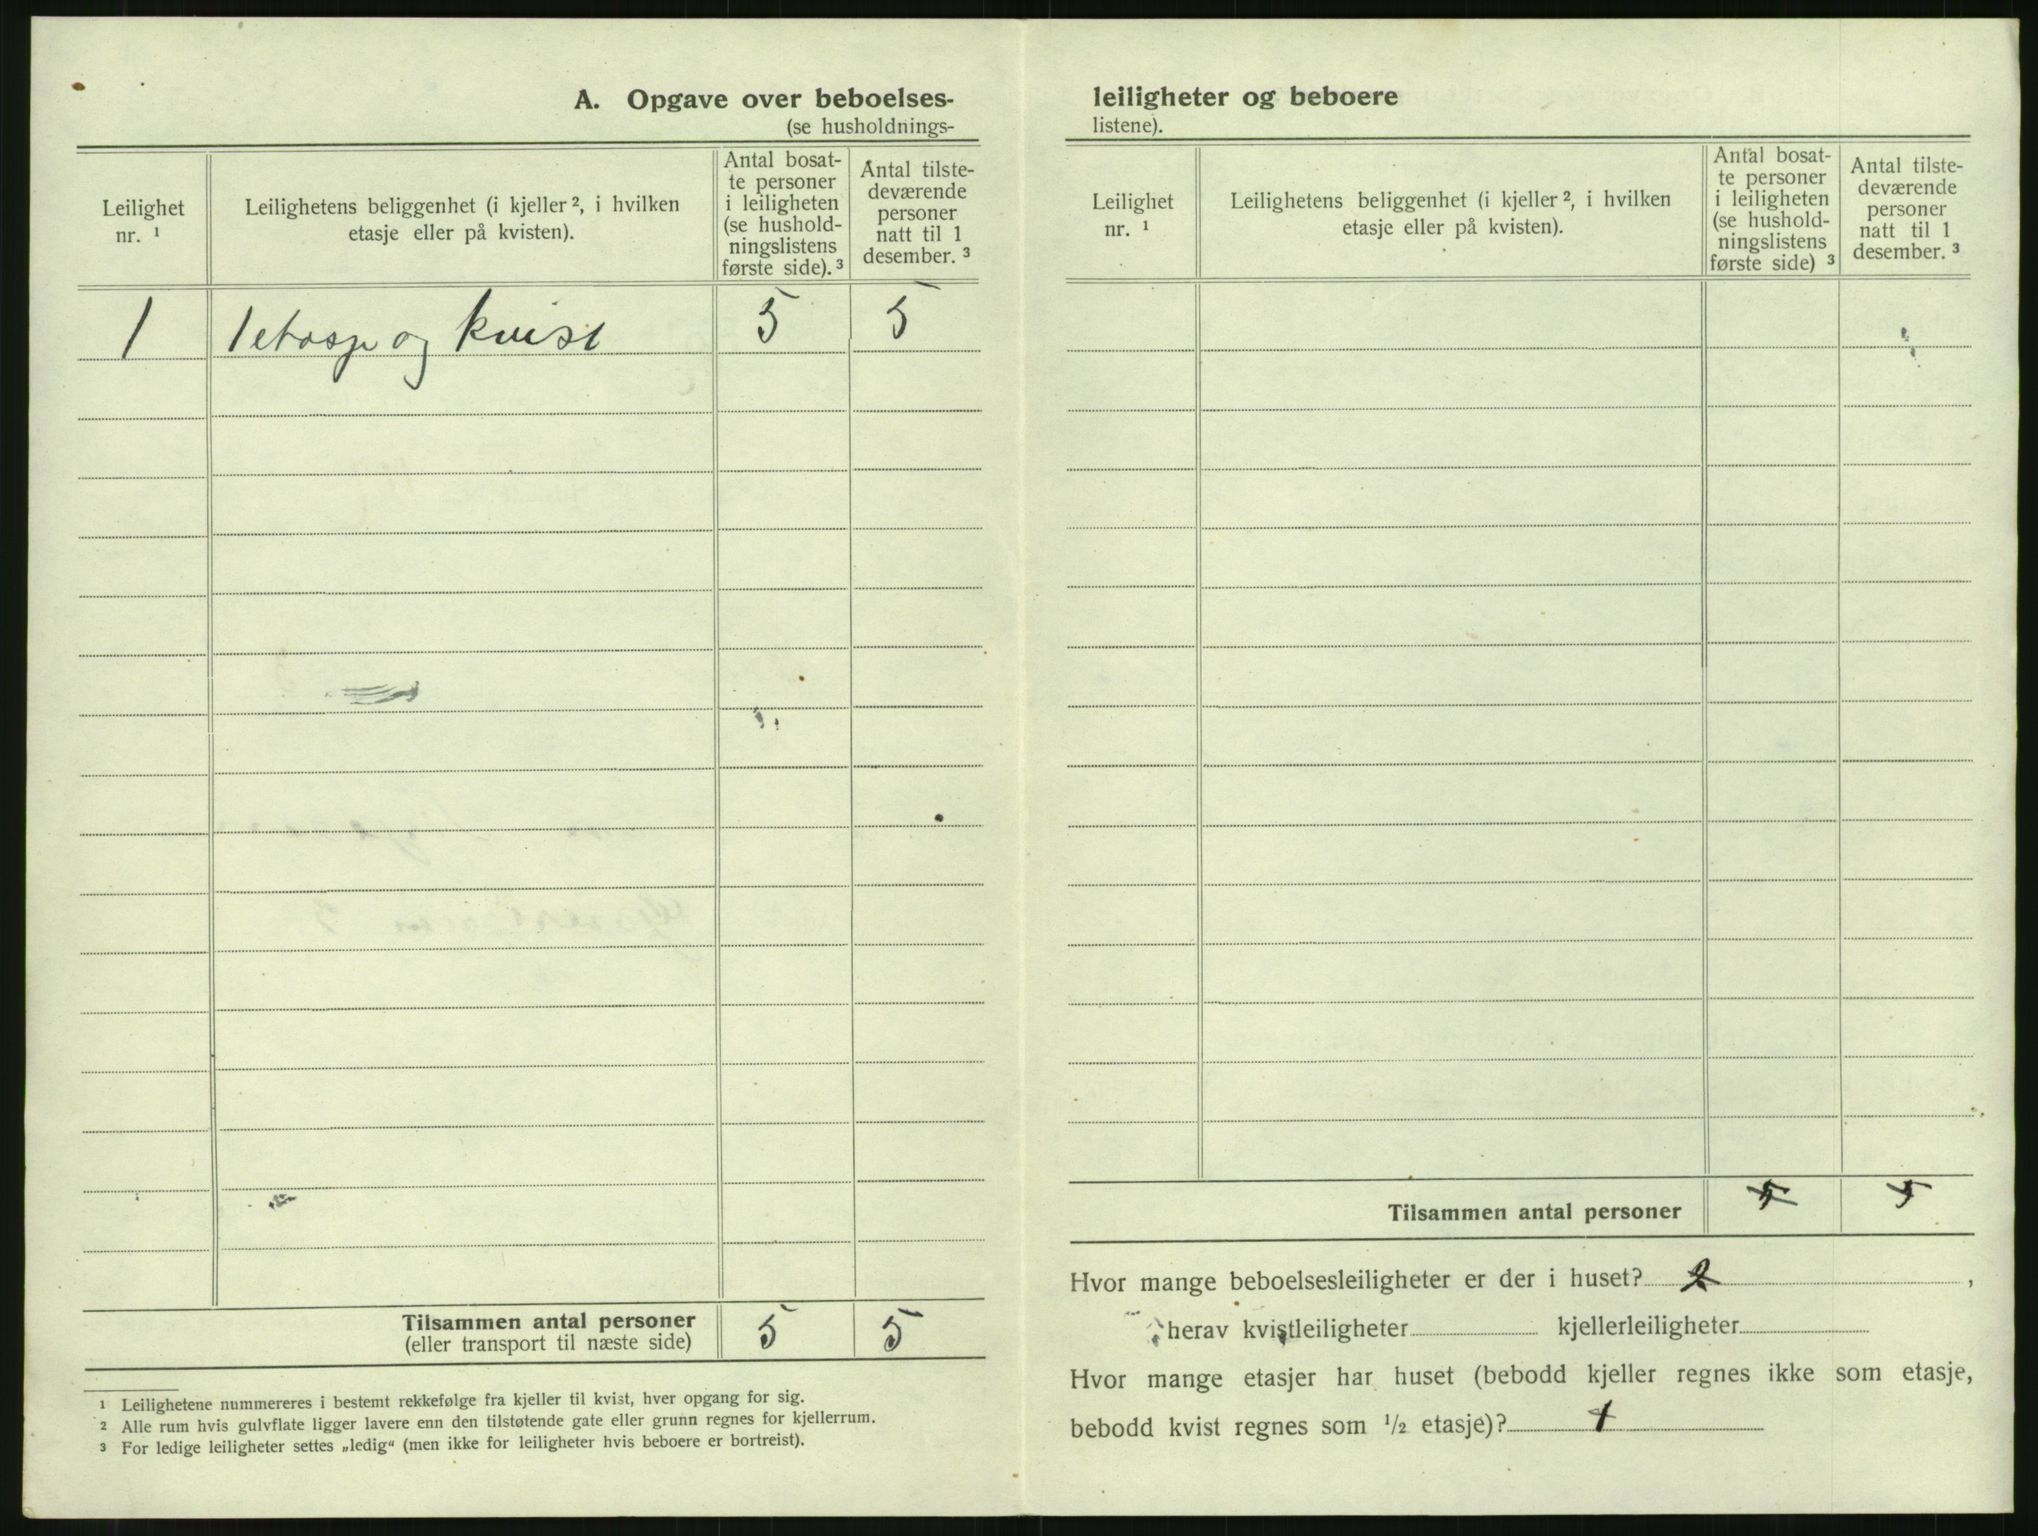 A. Opgave over beboelses-
(se husholdnings-
Leilighet nr. ¹
Leilighetens beliggenhet (i kjeller ², i hvilken etasje eller på kvisten).
Antal bosat-
te personer
i leiligheten
(se hushold-
ningslistens
første side). ³
Antal tilste-
deværende
personer
natt til 1
desember. ³
1 1 etasje og kvist 5 5
Tilsammen antal personer 5 5
(eller transport til næste side)
¹ Leilighetene nummereres i bestemt rekkefølge fra kjeller til kvist, hver opgang for sig.
² Alle rum hvis gulvflate ligger lavere enn den tilstøtende gate eller grunn regnes for kjellerrum.
³ For ledige leiligheter settes „ledig“ (men ikke for leiligheter hvis beboere er bortreist).
leiligheter og beboere
listene).
Leilighet nr. ¹
Leilighetens beliggenhet (i kjeller ², i hvilken etasje eller på kvisten).
Antal bosat-
te personer
i leiligheten
(se hushold-
ningslistens
første side) ³
Antal tilste-
deværende
personer
natt til 1
desember. ³
Tilsammen antal personer 5 5
Hvor mange beboelsesleiligheter er der i huset? 2 ,
herav kvistleiligheter kjellerleiligheter
Hvor mange etasjer har huset (bebodd kjeller regnes ikke som etasje,
bebodd kvist regnes som ½ etasje)? 1